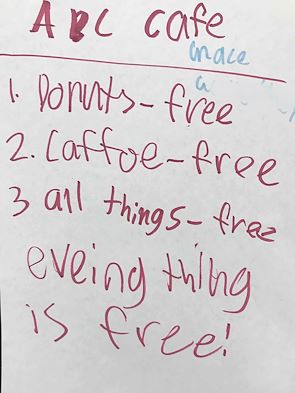 ABC cafe
1. Donuts - free
2. Caffoe - free
3 all things - free
eveing thing
is free!